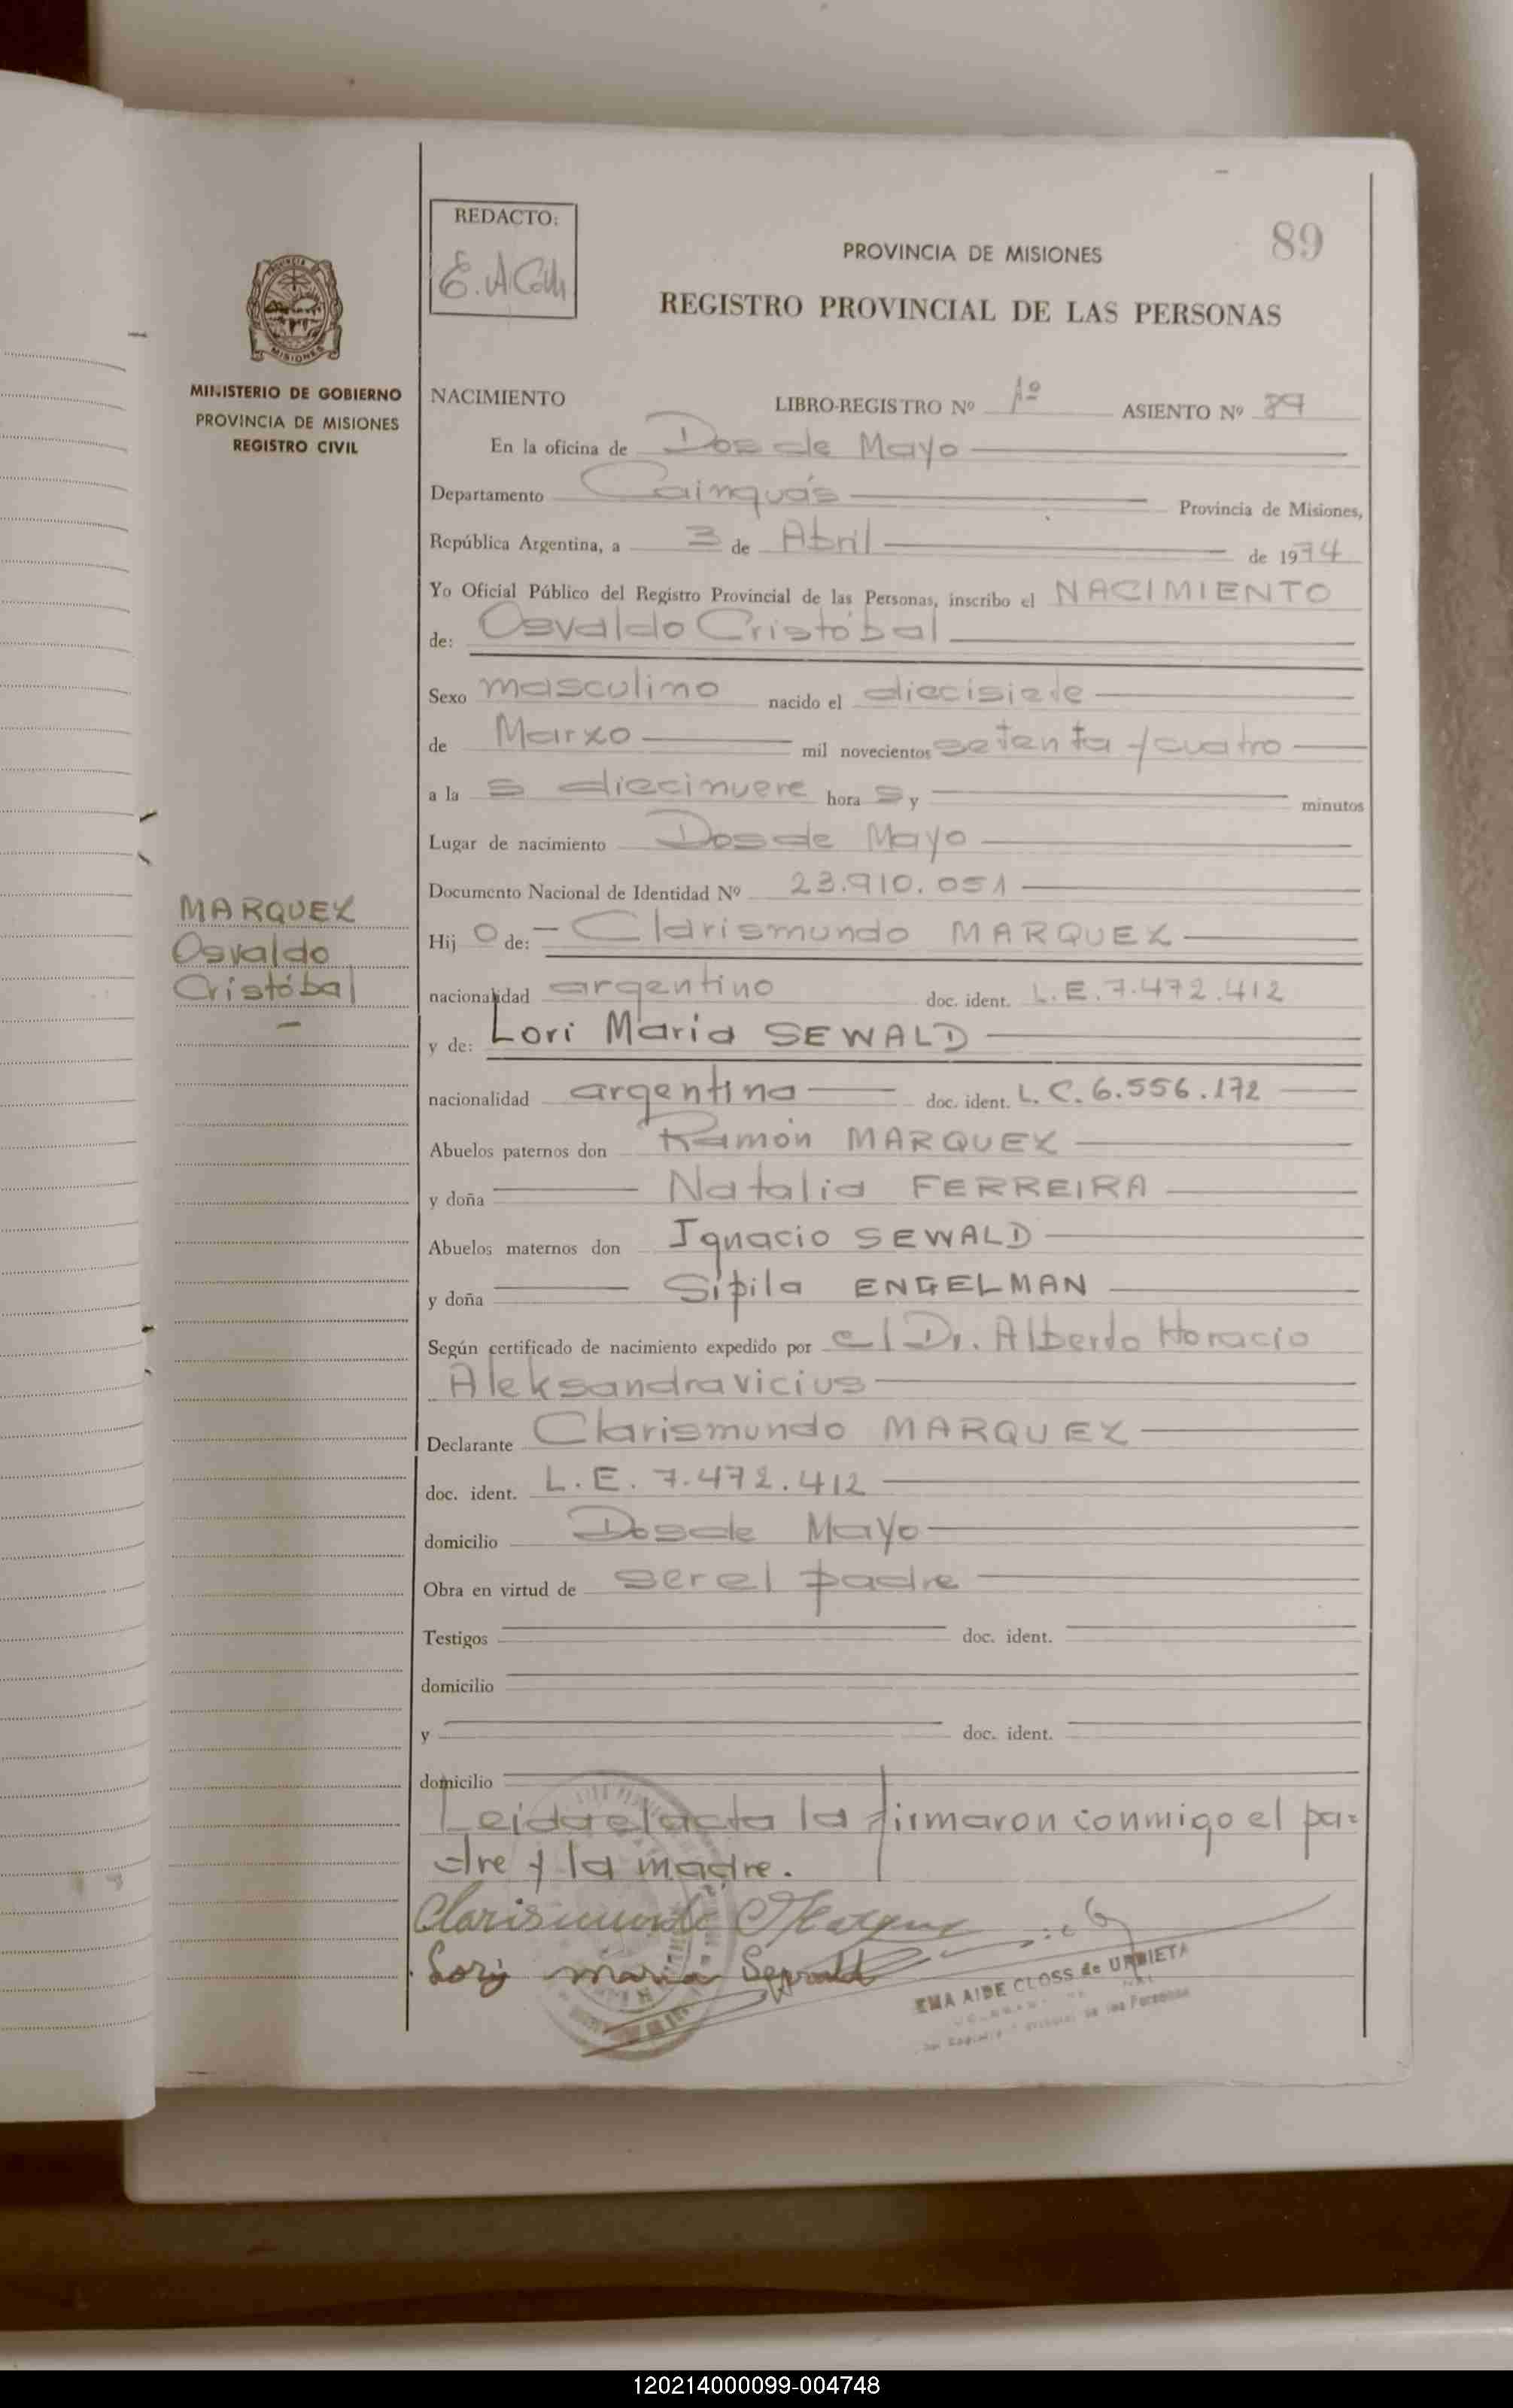 89
REDACTO:
PROVINCIA DE MISIONES
REGISTRO PROVINCIAL DE LAS PERSONAS
MINISTERIO DE GOBIERNO
PROVINCIA DE MISIONES
REGISTRO CIVIL
NACIMIENTO LIBRO-REGISTRO Nº 1º ASIENTO Nº 89
En la oficina de Dos de Mayo
Departamento Cainguás Provincia de Misiones,
República Argentina, a 3 de Abril de 1974
Yo Oficial Público del Registro Provincial de las Personas, inscribo el NACIMIENTO
de: Osvaldo Cristóbal
Sexo masculino nacido el diecisiete
de Marzo mil novecientos setenta y cuatro
a la s diecinueve hora s y minutos
Lugar de nacimiento Dos de Mayo
Documento Nacional de Identidad Nº 23.910.051
MARQUEZ
Osvaldo
Cristóbal
Hij o de: Clarismundo MARQUEZ
nacionalidad argentino doc. ident. L.E. 7.472.412
y de: Lori Maria SEWALD
nacionalidad argentina doc. ident. L.C. 6.556.172
Abuelos paternos don Ramón MARQUEZ
y doña Natalia FERREIRA
Abuelos maternos don Ignacio SEWALD
y doña Sipila ENGELMAN
Según certificado de nacimiento expedido por el Dr. Alberto Horacio
Aleksandravicius
Declarante Clarismundo MARQUEZ
doc. ident. L.E. 7.472.412
domicilio Dos de Mayo
Obra en virtud de ser el padre
Testigos doc. ident.
domicilio
y doc. ident.
domicilio
Leida el acta la firmaron conmigo el pa=
dre y la madre.
Clarismundo Marquez
Lori maria Sewald
EMA AIDE CLOSS de URBIETA
120214000099-004748